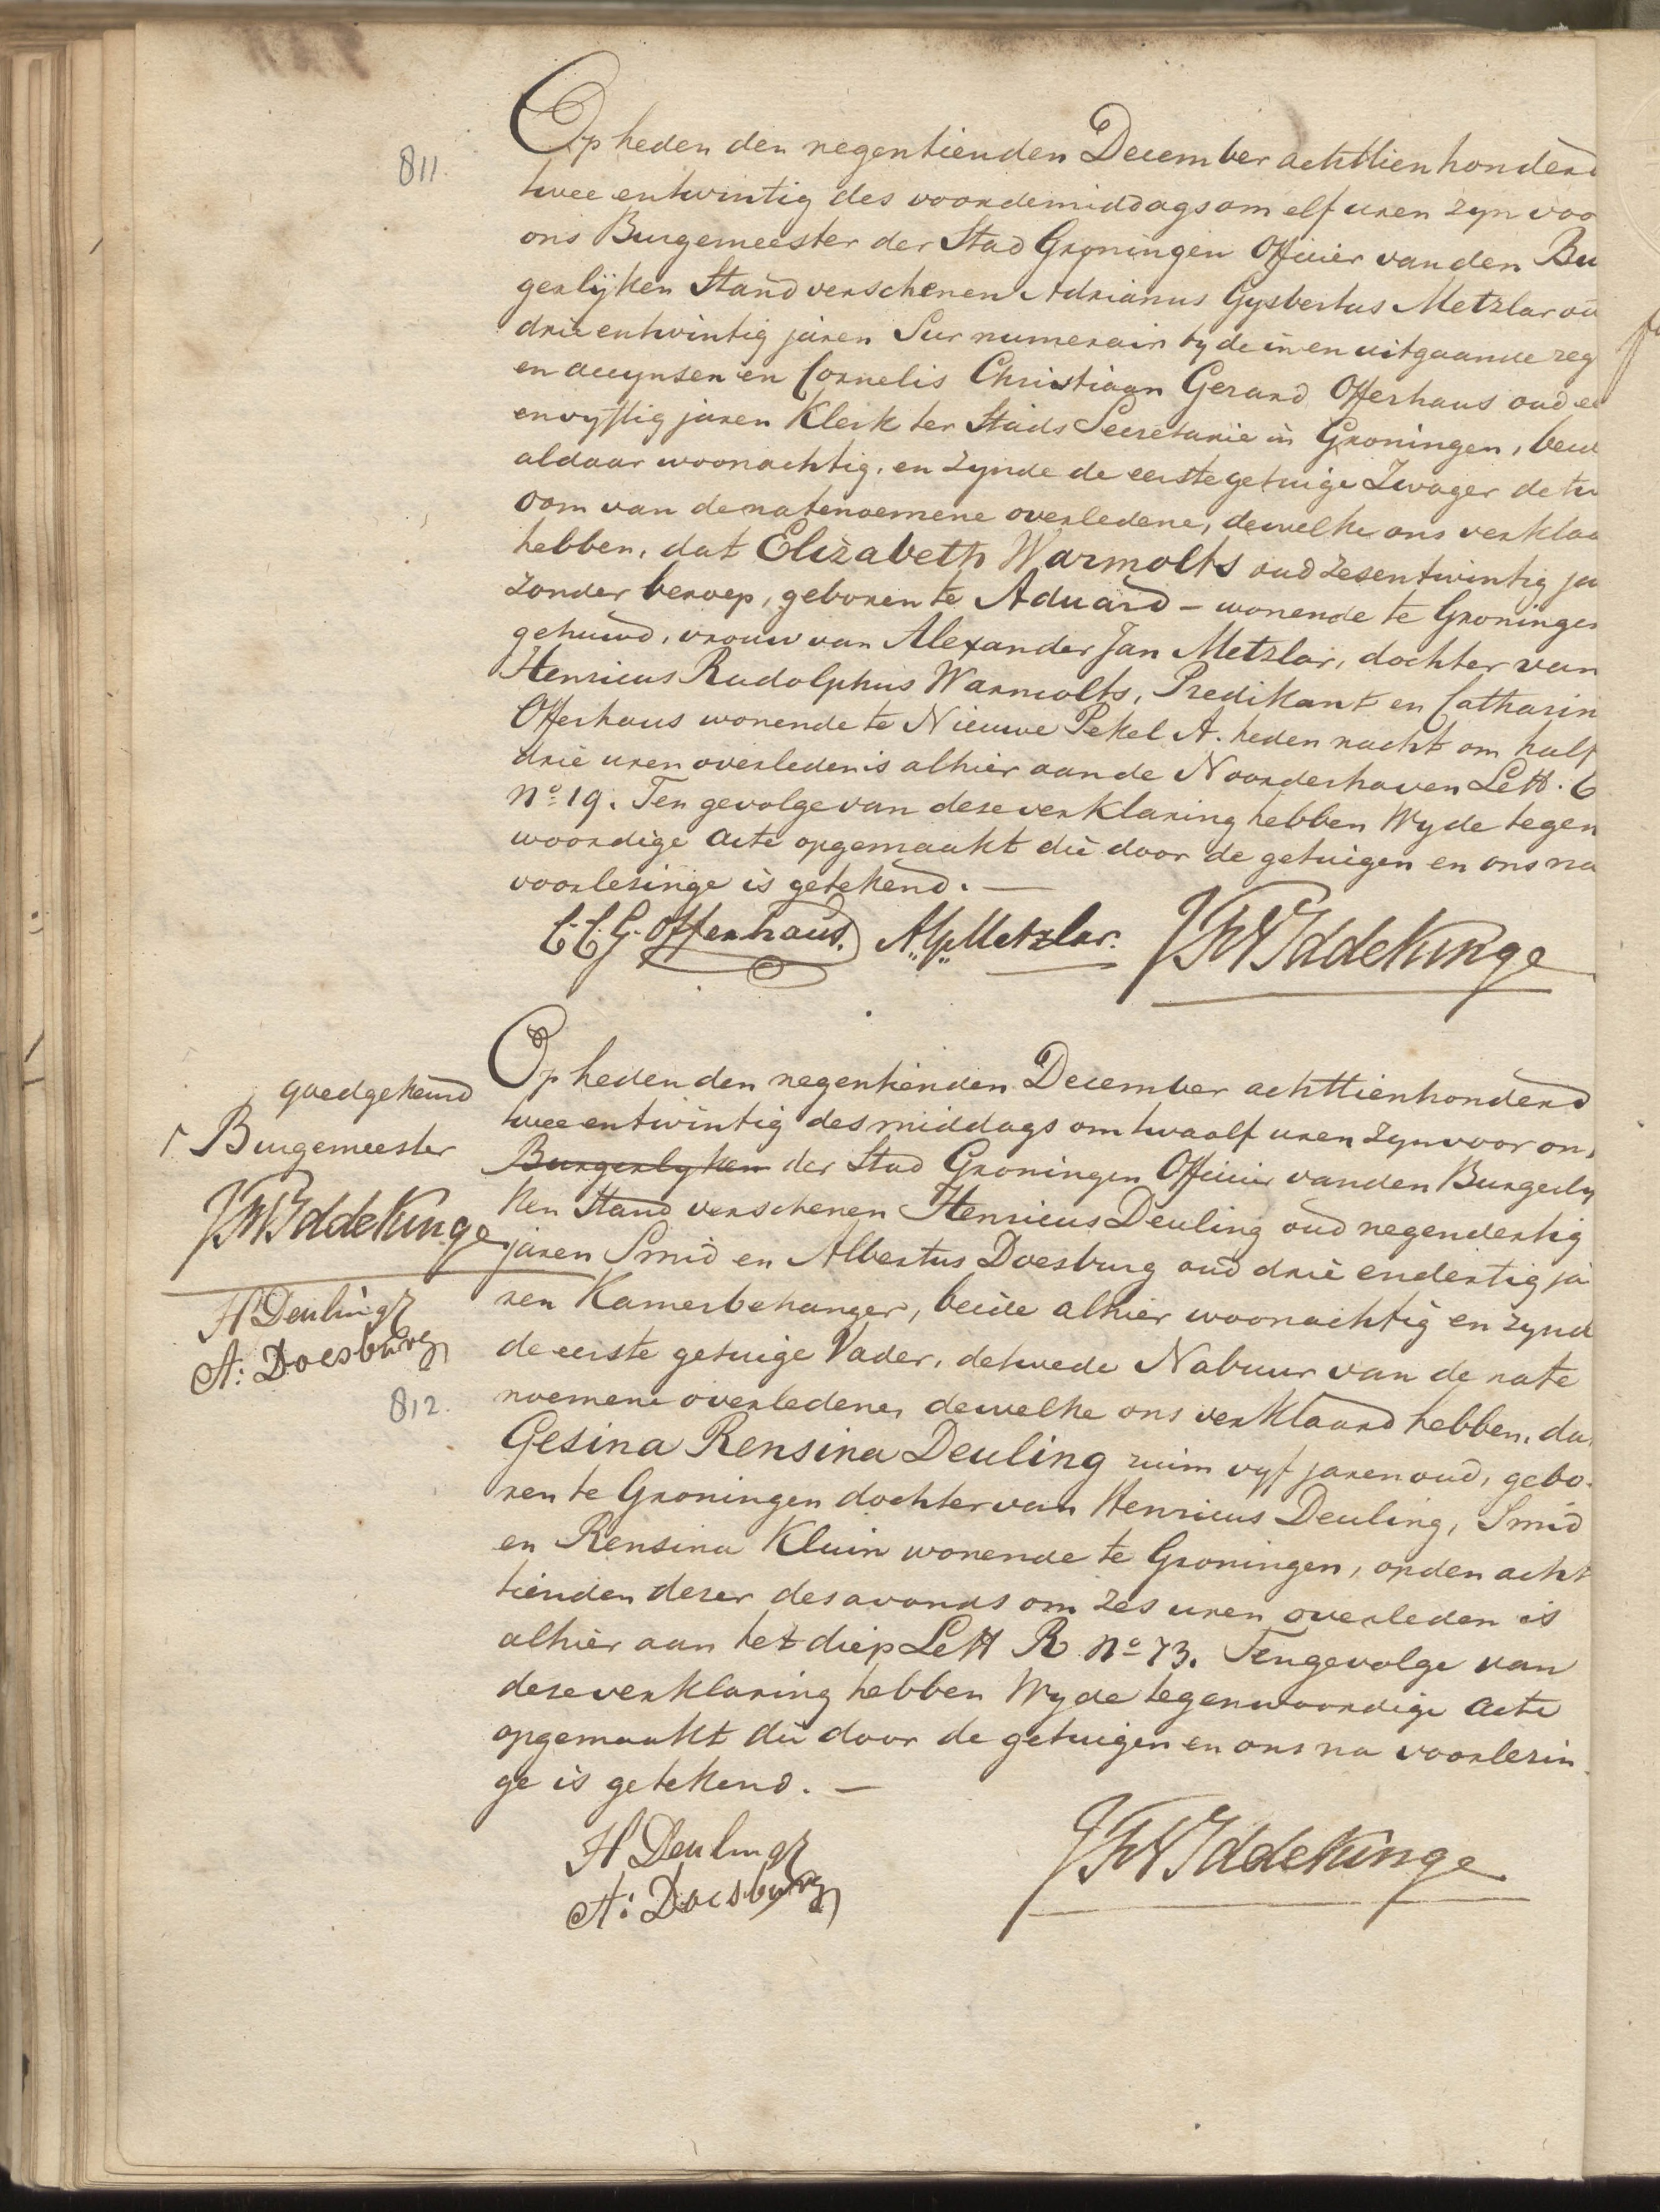 811.
Op heden den negentienden December achttienhonderd
twee entwintig des voordemiddags om elf uren zyn voo
ons Burgemeester der Stad Groningen Officier van den Bu
gerlyken Stand verschenen Adrianus Gysbertus Metzlar ou
drie entwintig jaren Surnumerair by de in en uitgaande reg
en accynsen en Cornelis Christiaan Gerard Offerhaus oud ee
en vyftig jaren Klerk ter Stads Secretarie in Groningen, beid
aldaar woonachtig, en zynde de eerste getuige Zwager de tw
oom van de natenoemene overledene, dewelke ons verklaa
hebben, dat Elizabeth Warmolts oud zesentwintig ja
zonder beroep, geboren te Aduard - wonende te Groningen
gehuwd, vrouw van Alexander Jan Metzlar, dochter van
Henricus Rudolphus Warmolts, Predikant en Catharin
Offerhaus wonende te Nieuwe Pekel A. heden nacht om half
drie uren overleden is alhier aan de Noorderhaven Lett. C
No 19. Ten gevolge van deze verklaring hebben Wy de tegen
woordige acte opgemaakt die door de getuigen en ons na
voorlezinge is getekend. —
C. C. G. Offerhaus. A. G. Metzlar. JHVIddekinge
Op heden den negentienden December achttienhonderd
twee entwintig des middags om twaalf uren zyn voor ons
Burgerlyken der Stad Groningen Officier van den Burgerly
ken Stand verschenen Henricus Deuling oud negendertig
jaren Smid en Albertus Doesburg oud drie endertig ja
ren Kamerbehanger, beide alhier woonachtig en zynd
de eerste getuige Vader, de twede Nabuur van de nate
noemene overledene, dewelke ons verklaard hebben, da
Gesina Rensina Deuling ruim vyf jaren oud, gebo
ren te Groningen dochter van Henricus Deuling, Smid
en Rensina Kluin wonende te Groningen, op den acht
tienden dezer des avonds om zes uren overleden is
alhier aan het diep Lett R No 73. Ten gevolge van
deze verklaring hebben Wy de tegenwoordige acte
opgemaakt die door de getuigen en ons na voorlezin
ge is getekend. —
H Deuling
A: Doesburg
JHVIddekinge
goedgekeurd
Burgemeester
JHVIddekinge
H Deuling
A: Doesburg
812.